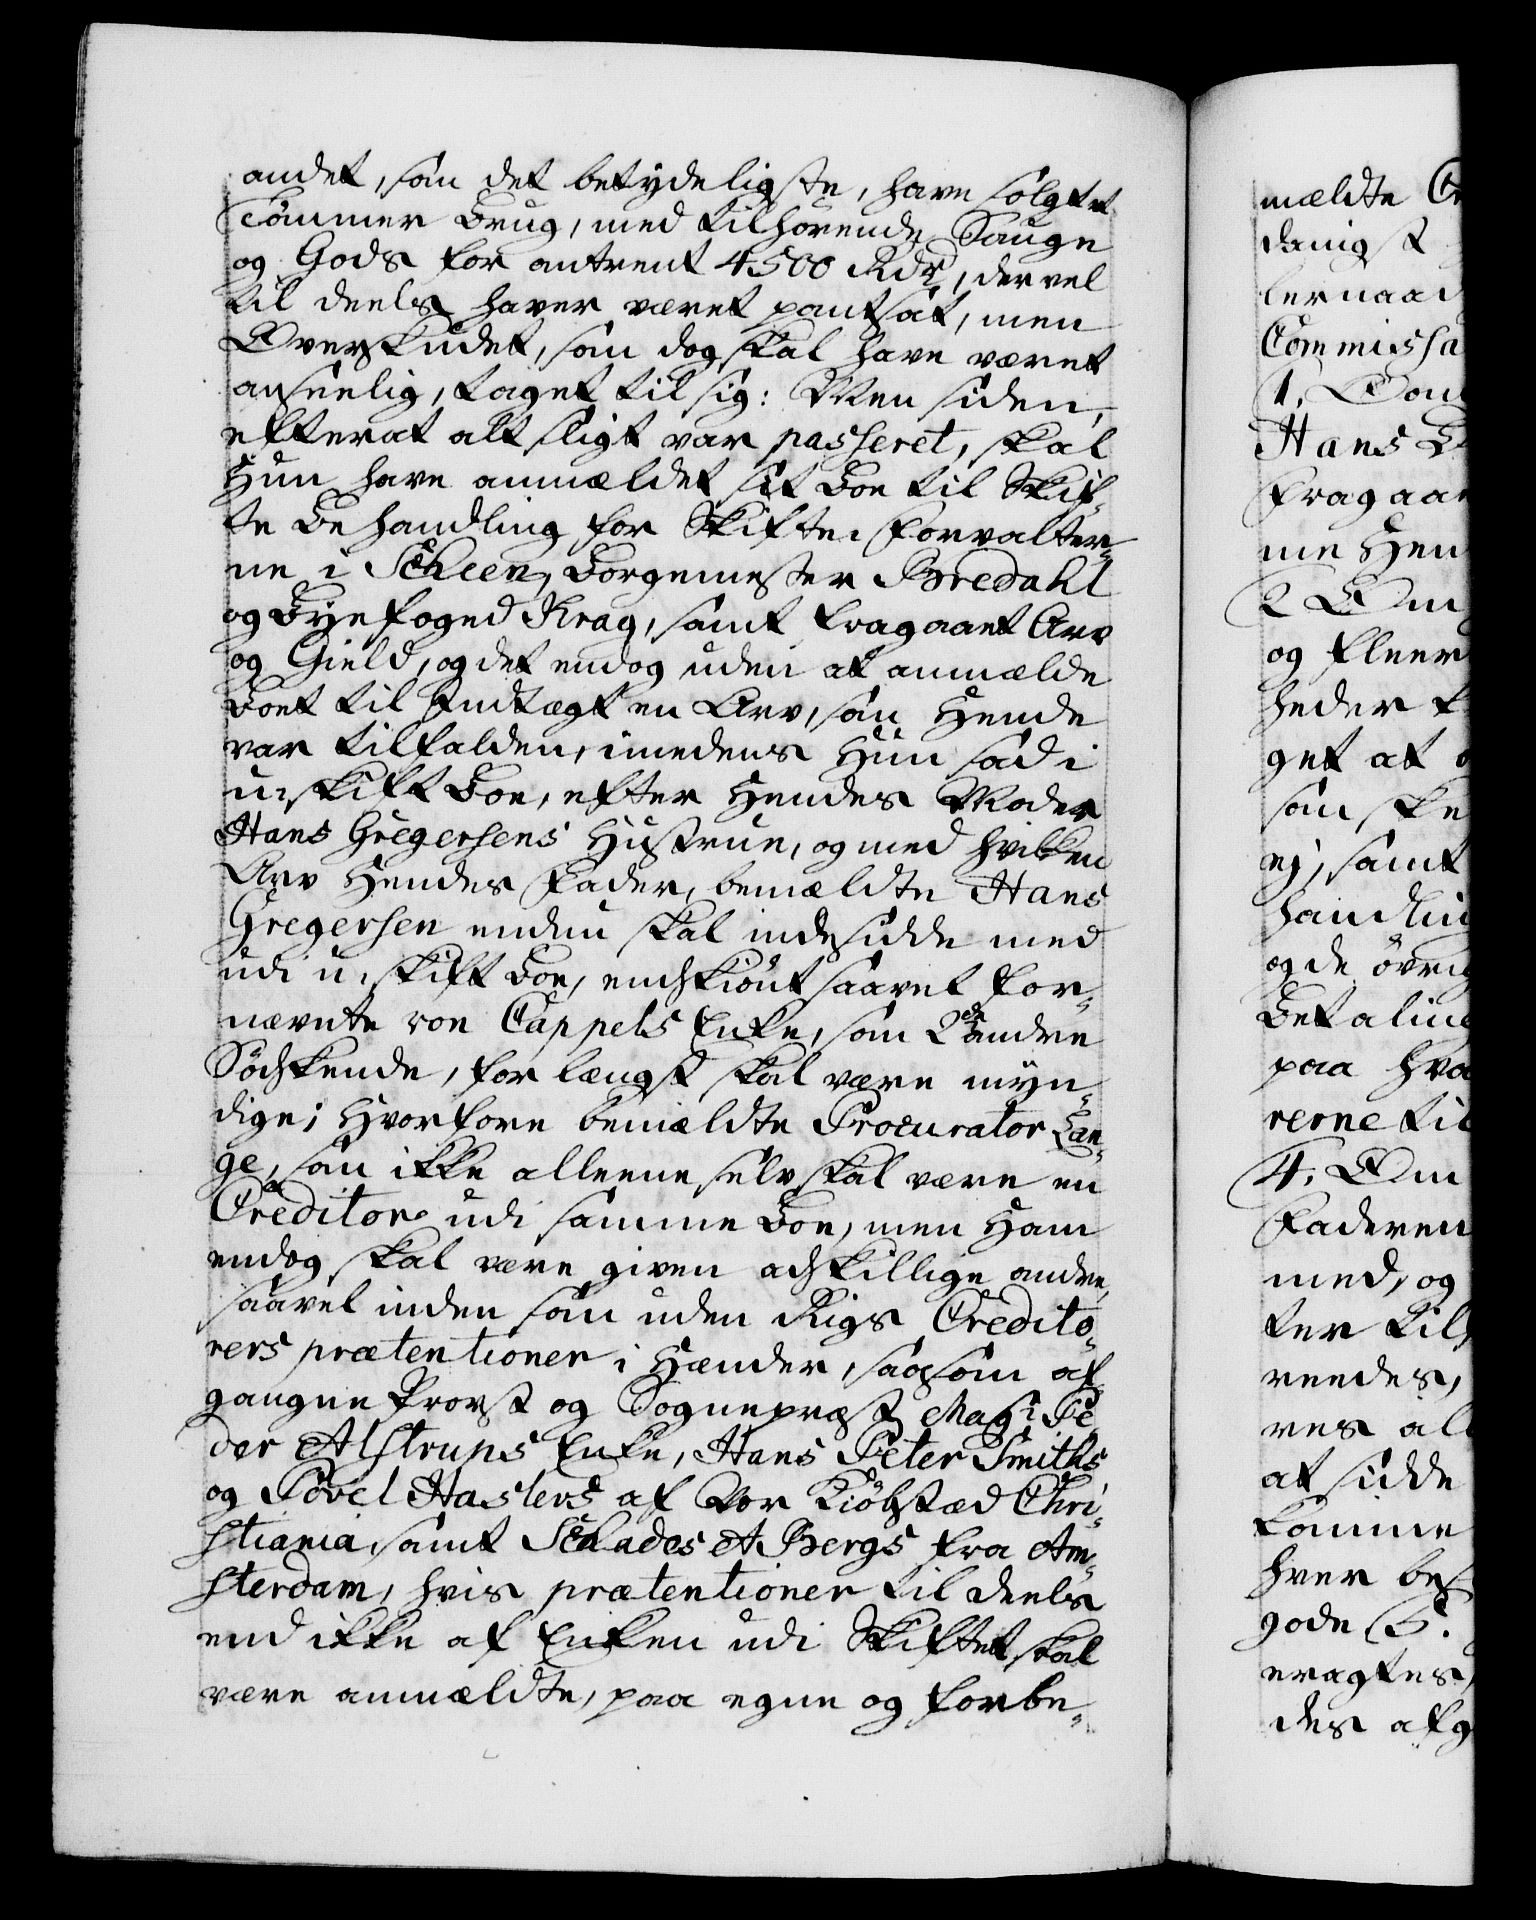 andet, som det betydeligste, have solgt et
Tømmer Brug, med tilhørende Sauge
og Gods for omtrent 4500 Rdr, der vel
til deels haver været pantsat, men
Overskudet, som dog skal have været
anseelig, taget til sig: Men siden,
efterat alt sligt var passeret, skal
Hun have anmældet sit Boe til Skif-
te Behandling for Skifte-Forvalter-
ne i Scheen, Borgemester Bredahl
og Byefoged Krag, samt fragaaet Arv
og Gield, og det endog uden at anmælde
Boet til Indtægt en Arv, som Hende
var tilfalden, imedens Hun sad i
u-skift Boe, efter Hendes Moder
Hans Gregersens Hustrue, og med hvilken
Arv Hendes Fader, bemældte Hans
Gregersen endnu skal indesidde med
udi u-skift Boe, endskiønt saavel for-
nævnte von Cappels Enke, som 2de andre
Sødskende, for længst skal være myn-
dige; Hvorfore bemældte Procurator Lan-
ge, som ikke alleene selv skal være en
Creditor udi samme Boe, men Ham
endog skal være given adskillige andre,
saavel inden som uden Rigs Credito-
rers prætentioner i Hænder, saasom af-
gangne Provst og Sognepræst Magr Pe
der Alstrups Enke, Hans Peter Smiths
og Povel Haslers af Vor Kiøbstæd Chri-
stiania, samt Schades & Bergs fra Am-
sterdam, hvis prætentioner til deels
end ikke af Enken udi Skiftet skal
være anmældte, paa egne og forbe-
mældte Cr
danigst
lernaad
Commissa
1,
Hans B
fragaae
me Hen
2 Om
og fleer
heder
get at
som ske
ej, samt
handlin
og de øvrig
Betaling
paa hva
rerne til
4, Om
Faderen
med, og
ter til
reedes,
res al
at sidde
komme
hver bes
gode
eragtes,
des afg